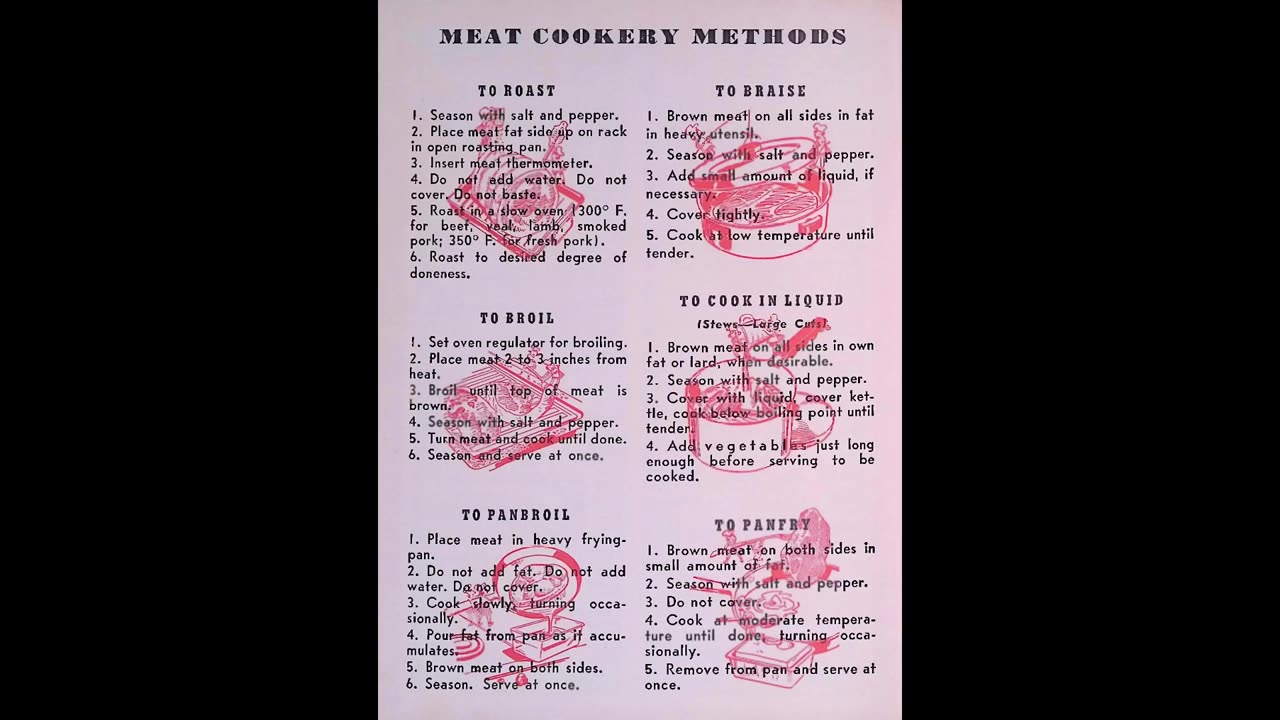 MEAT COOKERY METHODS
TO ROAST
1. Season with salt and pepper.
2. Place meat fat side up on rack
in open roasting pan.
3. Insert meat thermometer.
4. Do not add water. Do not
cover. Do not baste.
5. Roast in a slow oven (300° F.
for beef, veal, lamb, smoked
pork; 350° F. for fresh pork).
6. Roast to desired degree of
doneness.
TO BROIL
1. Set oven regulator for broiling.
2. Place meat 2 to 3 inches from
heat.
3. Broil until top of meat is
brown.
4. Season with salt and pepper.
5. Turn meat and cook until done.
6. Season and serve at once.
TO PANBROIL
1. Place meat in heavy frying-
pan.
2. Do not add fat. Do not add
water. Do not cover.
3. Cook slowly, turning occa-
sionally.
4. Pour fat from pan as it accu-
mulates.
5. Brown meat on both sides.
6. Season. Serve at once.
TO BRAISE
1. Brown meat on all sides in fat
in heavy utensil.
2. Season with salt and pepper.
3. Add small amount of liquid, if
necessary.
4. Cover tightly.
5. Cook at low temperature until
tender.
TO COOK IN LIQUID
(Stews—Large Cuts)
1. Brown meat on all sides in own
fat or lard, when desirable.
2. Season with salt and pepper.
3. Cover with liquid, cover ket-
tle, cook below boiling point until
tender.
4. Add vegetables just long
enough before serving to be
cooked.
TO PANFRY
1. Brown meat on both sides in
small amount of fat.
2. Season with salt and pepper.
3. Do not cover.
4. Cook at moderate tempera-
ture until done, turning occa-
sionally.
5. Remove from pan and serve at
once.